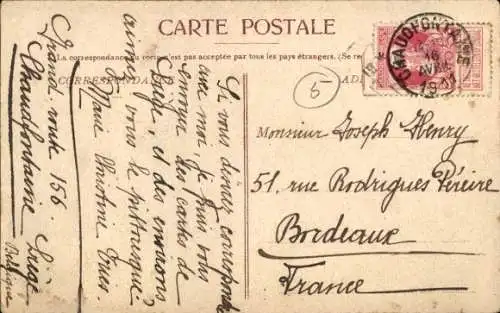 CARTE POSTALE
La correspondance au verso n'est pas acceptée par tous les pays étrangers. (Se re
CORRESPONDANCE
AD
CHAUDFONTAINE
16
AVRIL
1911
5
Si vous désirez correspondre
avec moi, je puis vous
envoyer des cartes de
Liège, et des environs
aimez vous le pittoresque?
Marie Christine
Grand route 156.
Chaudfontaine Liège
Belgique
Monsieur Joseph Henry
51, rue Rodrigues Péreire
Bordeaux
France